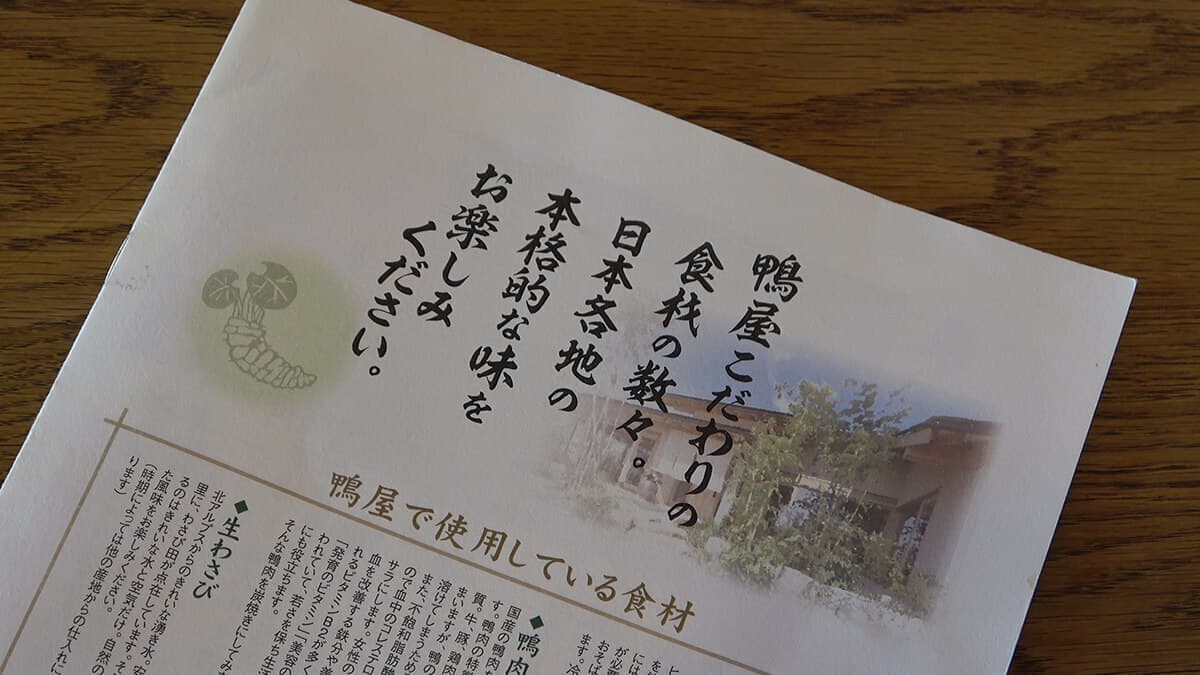 鴨屋こだわりの
食材の数々。
日本各地の
本格的な味を
お楽しみ
ください。
鴨屋で使用している食材
◆鴨肉
国産の鴨肉
す。鴨肉の特徴
質。牛、豚、鶏肉
溶けてしまうため
まいますが、鴨の
また、不飽和脂肪酸
ので血中のコレステロ
サラにします。女性の
血を改善する鉄分や美
れるビタミンB2が多く
「発育のビタミン」「美容の
われていて、若さを保ち生活
にも役立ちます。
そんな鴨肉を炭焼きにしてみ
◆生わさび
北アルプスからのきれいな湧き水。安
里に、わさび田が点在しています。そ
るのはきれいな水と空気だけ。自然の
た風味をお楽しみください。
(時期によっては他の産地からの仕入れに
ります)